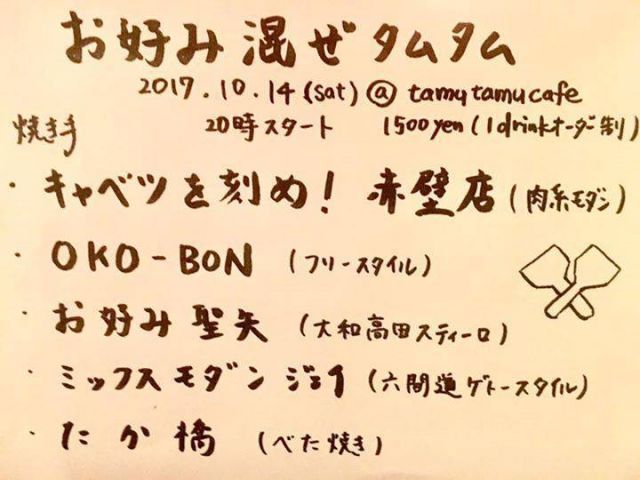 お好み混ぜタムタム
2017.10.14(sat)@tamutamucafe
焼き手 20時スタート 1500yen(1drinkオーダー制)
・キャベツを刻め!赤壁店(肉系モダン)
・OKO-BON(フリースタイル)
・お好み聖矢(大和高田スティーロ)
・ミックスモダンジェイ(六間道ゲトースタイル)
・たか橋(べた焼き)